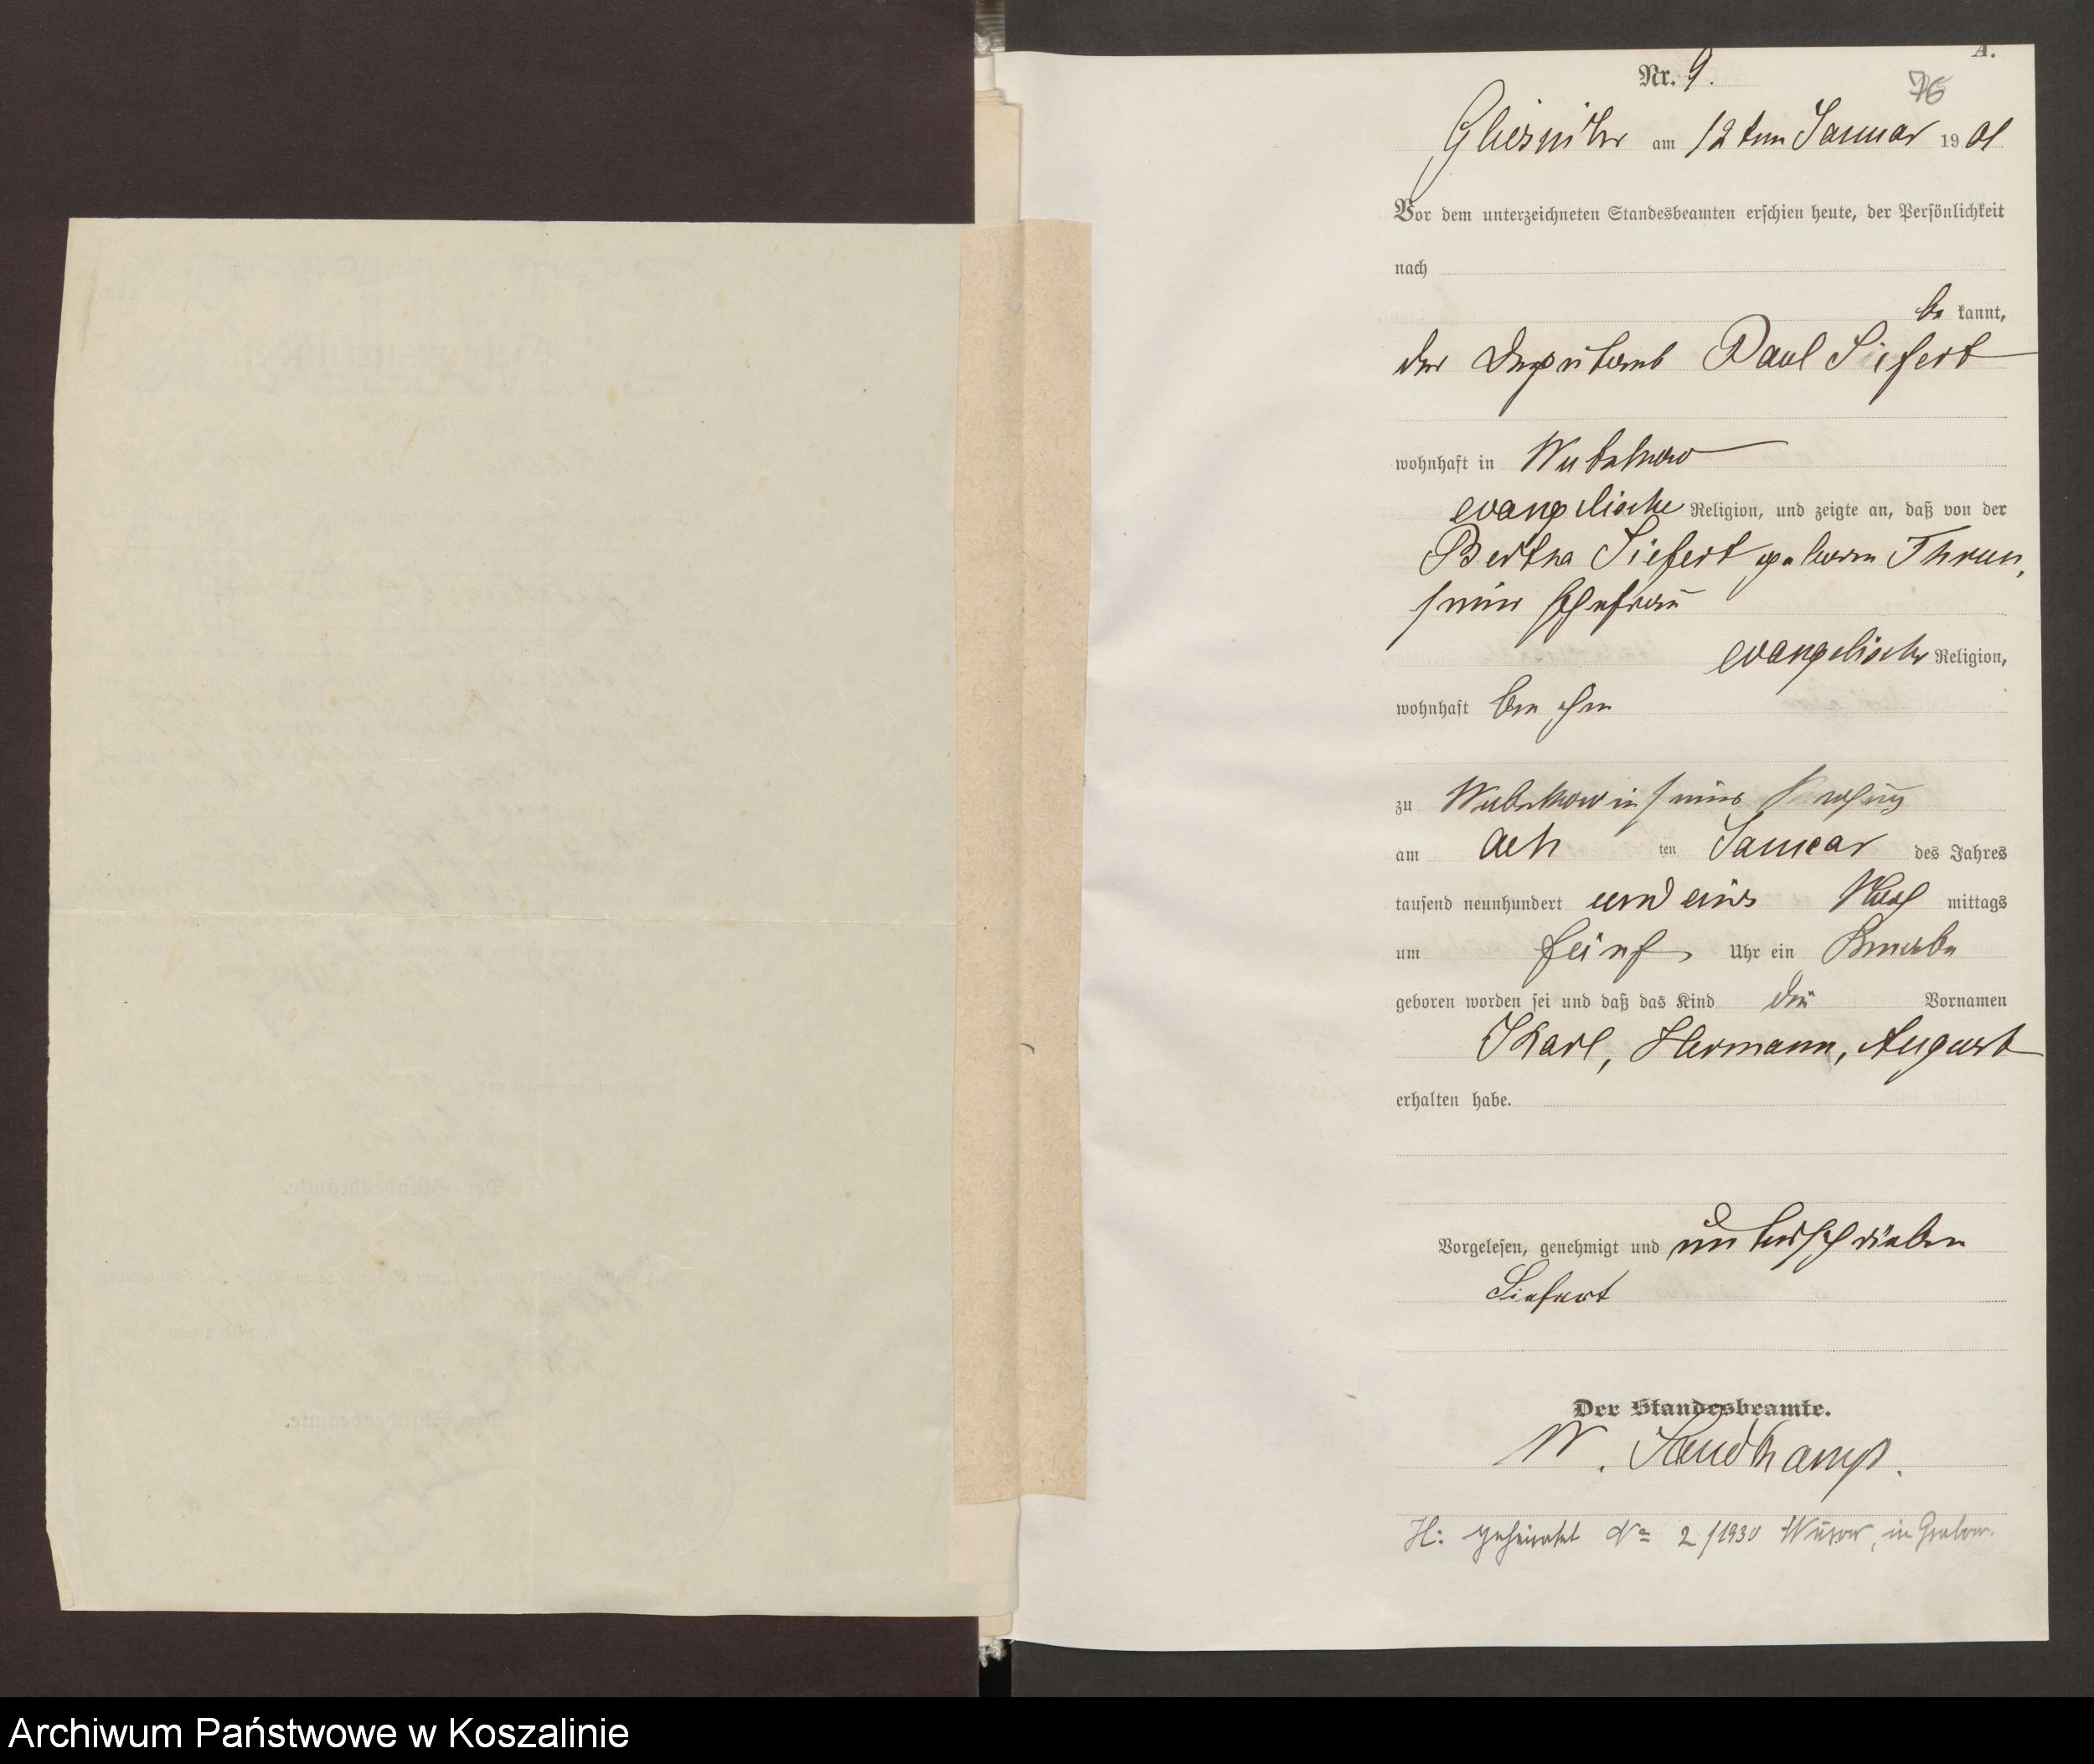 A.
Nr. 9.
76
Gliesnitz am 12ten Januar 1901
Vor dem unterzeichneten Standesbeamten erschien heute, der Persönlichkeit
nach
be kannt,
der Deputant Paul Siefert
wohnhaft in
evangelische Religion, und zeigte an, daß von der
Bertha Siefert geboren Thrun,
seine Ehefrau
evangelischer Religion,
wohnhaft bei ihm
zu in seiner Wohnung
am acht ten Januar des Jahres
tausend neunhundert und eins Nach mittags
um fünf Uhr ein Knabe
geboren worden sei und daß das Kind die Vornamen
Karl, Hermann, August
erhalten habe.
Vorgelesen, genehmigt und unterschrieben
Siefert
Der Standesbeamte.
W. Sandkamp.
H: geheiratet No 2/1930 in
Der Standesbeamte.
Archiwum Państwowe w Koszalinie